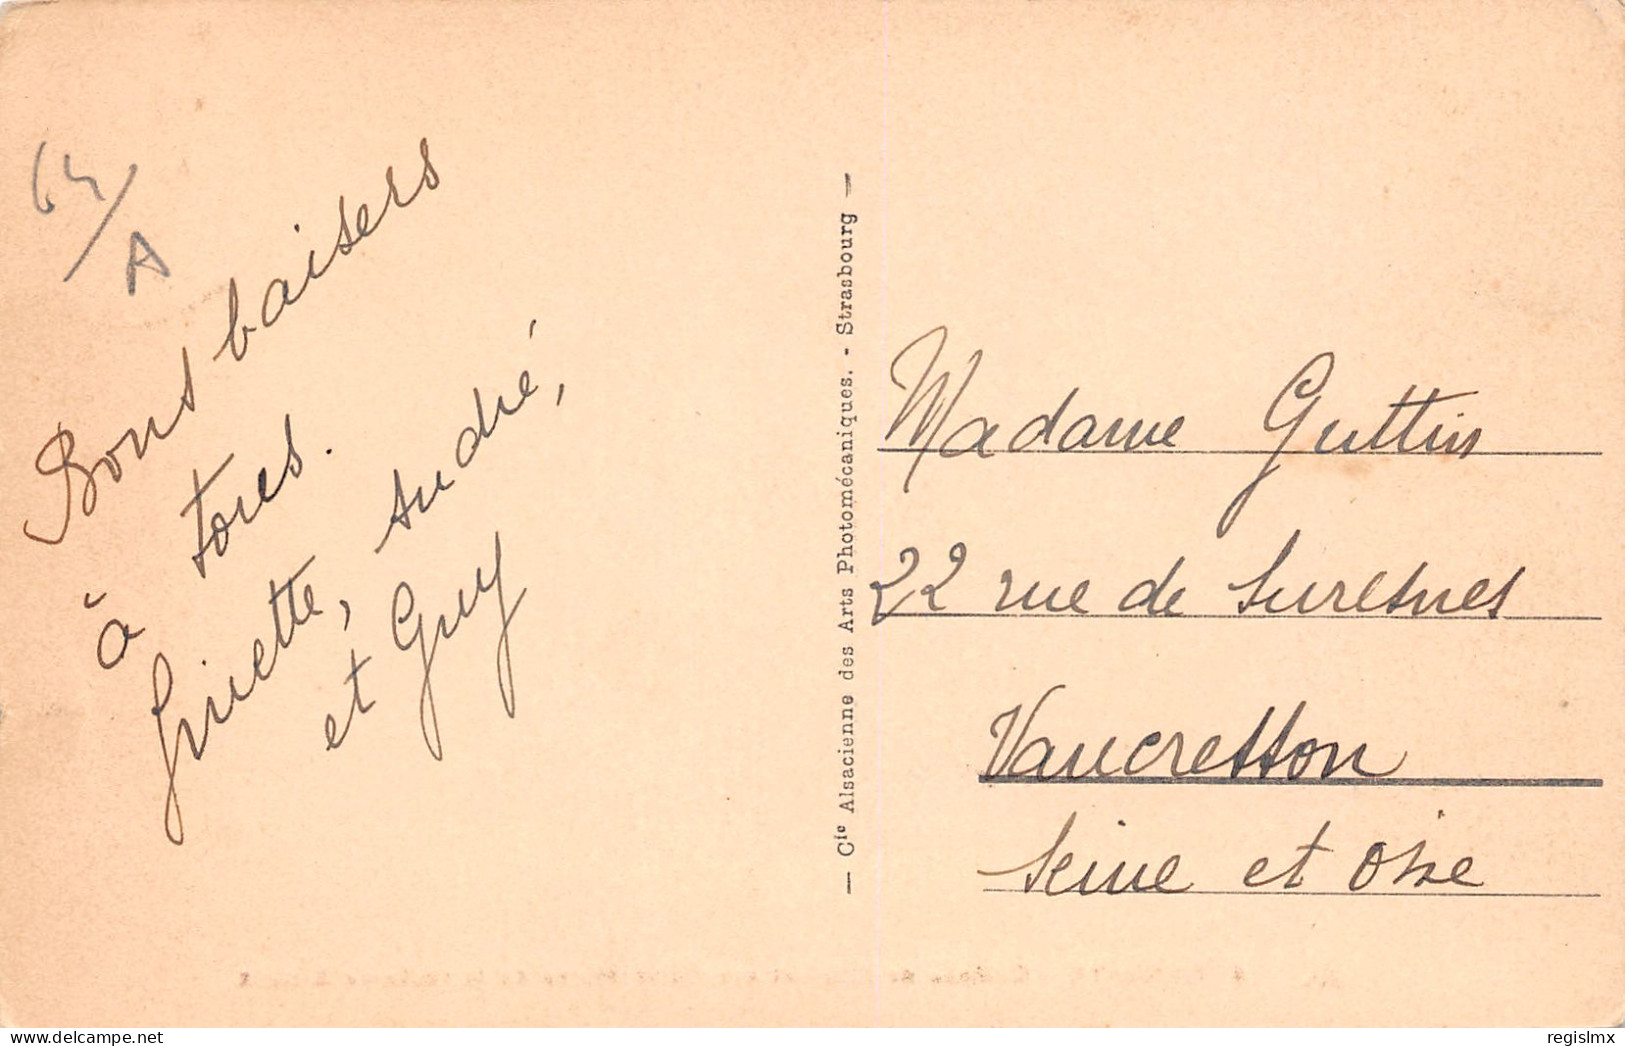 64/A
Bons baisers
à tous.
Ginette, André,
et Guy
— Cie Alsacienne des Arts Photomécaniques. - Strasbourg —
Madame Guttin
22 rue de Suresnes
Vaucresson
Seine et Oise
delcampe.net
regislmx